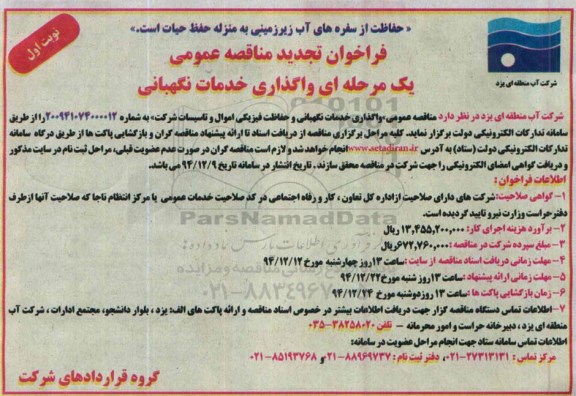 « حفاظت از سفره های آب زیرزمینی به منزله حفظ حیات است.»
نوبت اول
فراخوان تجدید مناقصه عمومی
یک مرحله ای واگذاری خدمات نگهبانی
شرکت آب منطقه ای یزد
شرکت آب منطقه ای یزد در نظر دارد مناقصه عمومی «واگذاری خدمات نگهبانی و حفاظت فیزیکی اموال و تاسیسات شرکت» به شماره ۲۰۰۹۴۱۰۷۴۰۰۰۰۱۲ را از طریق
سامانه تدارکات الکترونیکی دولت برگزار نماید. کلیه مراحل برگزاری مناقصه از دریافت اسناد تا ارائه پیشنهاد مناقصه گران و بازگشایی پاکت ها از طریق درگاه سامانه
تدارکات الکترونیکی دولت (ستاد) به آدرس www.setadiran.ir انجام خواهد شد و لازم است مناقصه گران در صورت عدم عضویت قبلی، مراحل ثبت نام در سایت مذکور
و دریافت گواهی امضای الکترونیکی را جهت شرکت در مناقصه محقق سازند. تاریخ انتشار در سامانه تاریخ ۹۴/۱۲/۹ می باشد.
اطلاعات فراخوان :
۱- گواهی صلاحیت: شرکت های دارای صلاحیت از اداره کل تعاون ، کار و رفاه اجتماعی در کد صلاحیت خدمات عمومی یا مرکز انتظام ناجا که صلاحیت آنها از طرف
دفتر حراست وزارت نیرو تایید گردیده است.
۲- برآورد هزینه اجرای کار: ۱۳,۴۵۵,۲۰۰,۰۰۰ ریال
۳- مبلغ سپرده شرکت در مناقصه : ۶۷۲,۷۶۰,۰۰۰ ریال
۴- مهلت زمانی دریافت اسناد مناقصه از سایت: ساعت ۱۳ روز چهارشنبه مورخ ۹۴/۱۲/۱۲
۵- مهلت زمانی ارائه پیشنهاد : ساعت ۱۳ روز شنبه مورخ ۹۴/۱۲/۲۲
۶- زمان بازگشایی پاکت ها : ساعت ۱۳ روز دوشنبه مورخ ۹۴/۱۲/۲۴
۷- اطلاعات تماس دستگاه مناقصه گزار جهت دریافت اطلاعات بیشتر در خصوص اسناد مناقصه و ارائه پاکت های الف: یزد ، بلوار دانشجو، مجتمع ادارات ، شرکت آب
منطقه ای یزد ، دبیرخانه حراست و امور محرمانه - تلفن ۳۸۲۵۸۰۲۰-۰۳۵
اطلاعات تماس سامانه ستاد جهت انجام مراحل عضویت در سامانه:
مرکز تماس : ۲۷۳۱۳۱۳۱-۰۲۱، دفتر ثبت نام : ۸۸۹۶۹۷۳۷-۰۲۱ و ۸۵۱۹۳۷۶۸-۰۲۱
گروه قراردادهای شرکت
ParsNamadData
۰۲۱-۸۸۳۴۹۶۷۰